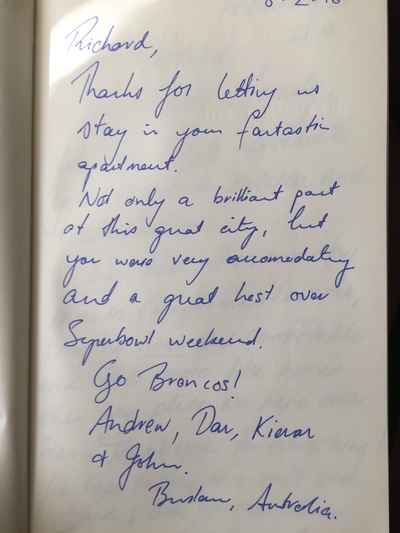 Richard,
Thanks for letting us
stay in your fantastic
apartment.
Not only a brilliant part
of this great city, but
you were very accomodating
and a great host over
Superbowl weekend.
Go Broncos!
Andrew, Dar, Kieran
& John.
Australia.